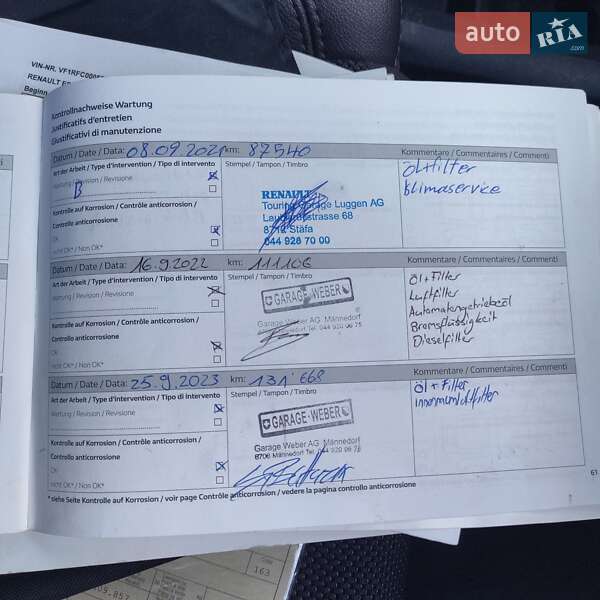 auto RIA .com
VIN-NR. VF1RFC000
RENAULT
Beginn
Kontrollnachweise Wartung
Justificatifs d'entretien
Giustificativi di manutenzione
Datum / Date / Data: 08.09.2021 km: 87540
Kommentare / Commentaires / Commenti
Art der Arbeit / Type d'intervention / Tipo di intervento
Stempel / Tampon / Timbro
Wartung / Revision / Revisione
B
Ölfilter
Klimaservice
RENAULT
Touring Garage Luggen AG
strasse 68
8712 Stäfa
044 928 70 00
Kontrolle auf Korrosion / Contrôle anticorrosion / Controllo
anticorrosione
OK
nicht OK* / Non OK*
Datum / Date / Data: 16.9.2022 km: 111106
Kommentare / Commentaires / Commenti
Art der Arbeit / Type d'intervention / Tipo di intervento
Stempel / Tampon / Timbro
Wartung / Revision / Revisione
Öl + Filter
Luftfilter
Automatengetriebeöl
Bremsflüssigkeit
Dieselfilter
GARAGE-WEBER
Garage Weber AG, Männedorf
Kontrolle auf Korrosion / Contrôle anticorrosion / Controllo
anticorrosione
OK
nicht OK* / Non OK*
Datum / Date / Data: 25.9.2023 km: 131'668
Kommentare / Commentaires / Commenti
Art der Arbeit / Type d'intervention / Tipo di intervento
Stempel / Tampon / Timbro
Wartung / Revision / Revisione
Öl + Filter
GARAGE-WEBER
Garage Weber AG
8708 Männedorf Tel. 044 920 06 75
Kontrolle auf Korrosion / Contrôle anticorrosion / Controllo
anticorrosione
OK
nicht OK* / Non OK*
* siehe Seite Kontrolle auf Korrosion / voir page Contrôle anticorrosion / vedere la pagina controllo anticorrosione
61
163